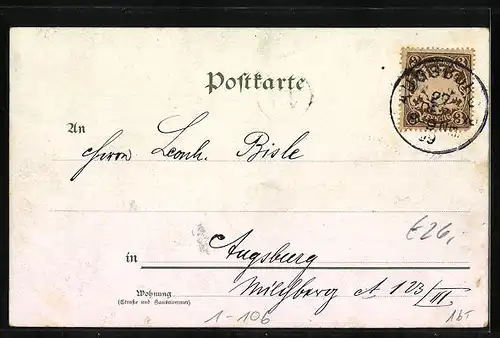 Postkarte
AUGSBURG
22
DEZ
99
An
Herrn Leonh. Bisle
in Augsburg
Wohnung
(Straße und Hausnummer)
Milchberg A 123/III
€26,-
1-106